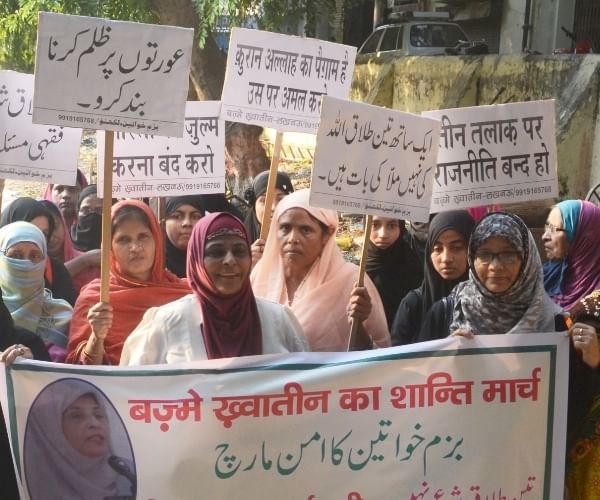 عورتوں پر ظلم کرنا
بند کرو۔
بزم خواتین، لکھنؤ/ 9919165768
क़ुरान अल्लाह का पैग़ाम है
उस पर अमल करो
बज़्मे ख़्वातीन-लखनऊ
طلاق
فقہی مسئلہ
ज़ुल्म
करना बंद करो
बज़्मे ख़्वातीन-लखनऊ/9919165768
ایک ساتھ تین طلاق اللہ
کی نہیں ملا کی بات ہیں۔
بزم خواتین، لکھنؤ/ 9919165768
तीन तलाक़ पर
राजनीति बन्द हो
बज़्मे ख़्वातीन-लखनऊ/9919165768
बज़्मे ख़्वातीन का शान्ति मार्च
بزم خواتین کا امن مارچ
تین طلاق